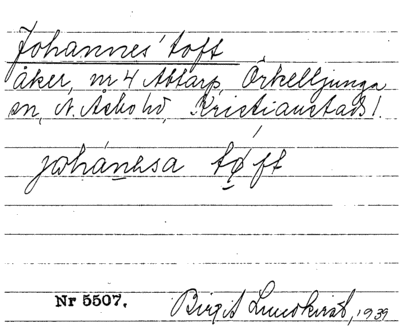 Johannes' toft
åker, nr 4 Attarp, Örkelljunga
sn, N. Åsbo hd, Kristianstads l.
johánesa tøft
Nr 5507.
Birgit Lundkvist, 1939